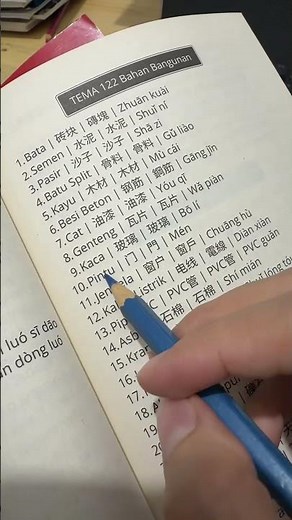 TEMA 122 Bahan Bangunan
1.Bata | 砖块 | 磚塊 | Zhuān kuài
2.Semen | 水泥 | 水泥 | Shuǐ ní
3.Pasir | 沙子 | 沙子 | Shā zi
4.Batu Split | 骨料 | 骨料 | Gǔ liào
5.Kayu | 木材 | 木材 | Mù cái
6.Besi Beton | 钢筋 | 鋼筋 | Gāng jīn
7.Cat | 油漆 | 油漆 | Yóu qī
8.Genteng | 瓦片 | 瓦片 | Wǎ piàn
9.Kaca | 玻璃 | 玻璃 | Bō lí
10.Pintu | 门 | 門 | Mén
11. | 窗户 | 窗戶 | Chuāng hù
12. Listrik | 电线 | 電線 | Diàn xiàn
13.Pipa PVC | PVC管 | PVC管 | PVC guǎn
14.Asb 石棉 | 石棉 | Shí mián
15.Kran
16.
17.
18.A
19.
luó sī dāo
dòng luó